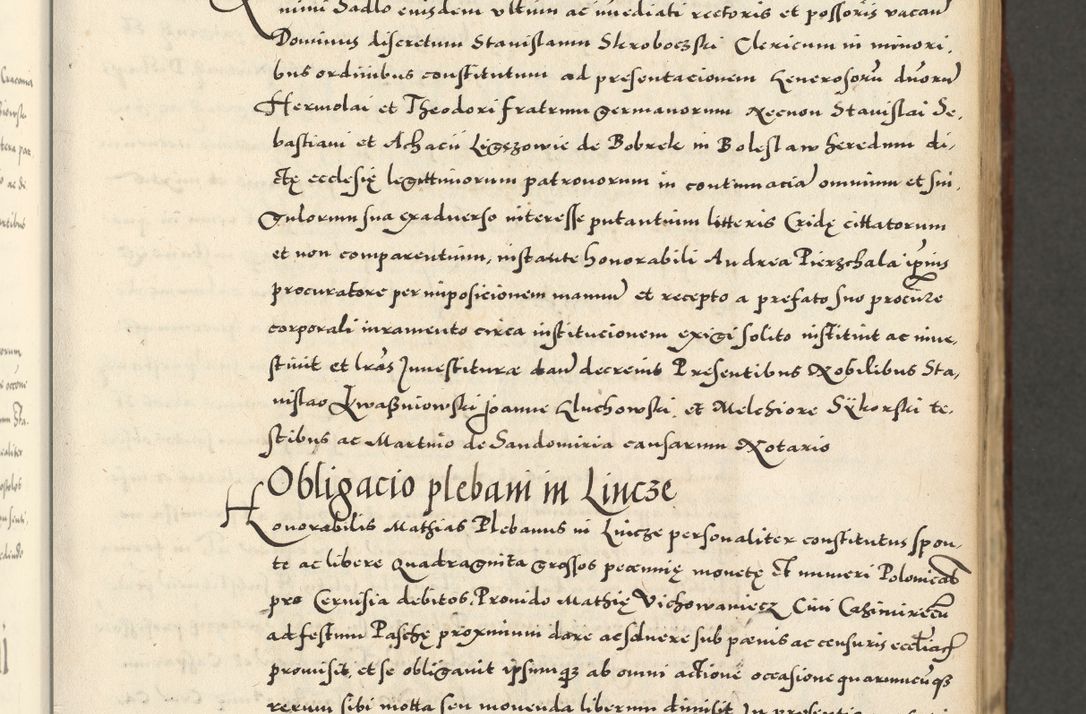 nimi Sadlo eiusdem ultimi ac immediati rectoris et possoris vacan
Dominus discretum Stanislaum Skroboczski Clericum in minori,
bus ordinibus constitutum ad presentacionem Generosorū duorū
Hermolai et Theodori fratrum germanorum Necnon Stanislai Se,
bastiani et Achacii Ligęzowie de Bobrek in Boleslaw heredum di,
ctę ecclesię legittimorum patronorum in contumaciā omnium et sin,
gulorum sua exadverso interesse putantium litteris Cridę cittatorum
et non comparentium, instante honorabili Andrea Pierzchala ipsius
procuratore per imposicionem manuū et recepto a prefato suo procure
corporali iuramento circa institucionem exigi solito instituit ac inve,
stivit et lras Investiturae dan decrevit Presentibus Nobilibus Sta,
nislao Kwaszniowski Joanne Gluchowski, et Melchiore Sÿkorski te,
stibus ac Martino de Sandomiria causarum Notario
Obligacio plebani in Lincze
Honorabilis Mathias Plebanus in Lincze personaliter constitutus spon,
te ac libere Quadraginta grossos pecunię monetę et numeri Polonicał
pro Cervisia debitos, Provido Mathię Vichowaniecz Civi Casimirecū
ad festum Paschę proximum dare ac solvere sub paenis ac censuris eccliac
promisit, et se obligavit ipsumqz ab omni actione occasione quarumcūqz
rerum sibi motta seu movenda liberum dimisit In presentia